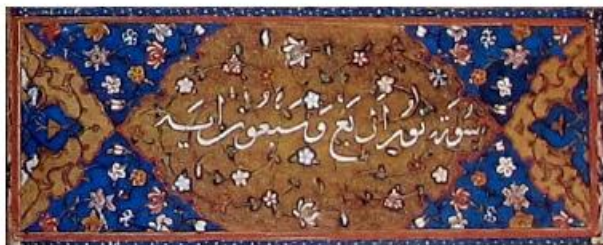 سورة نور اربع وسبعون اية